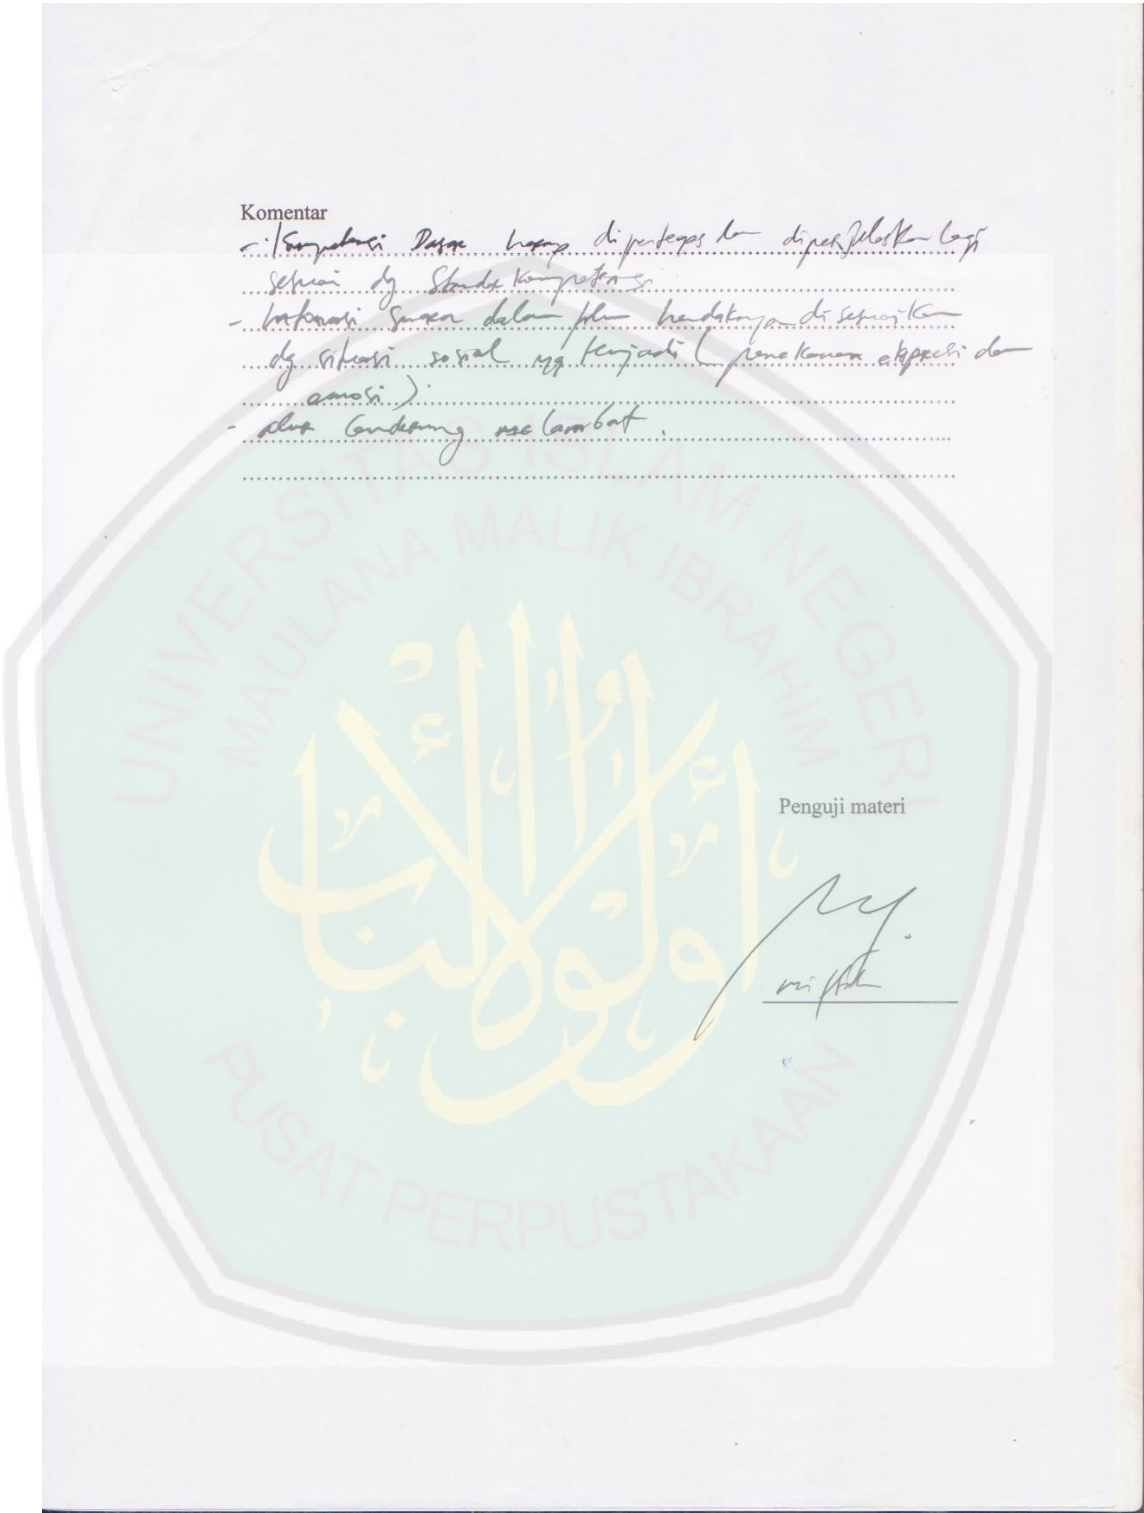 Komentar
- Kompetensi Dasar harap dipertegas dan diperjelaskan lagi
sesuai dg Standar Kompetensi
- Intonasi Suara dalam film hendaknya disesuaikan
dg situasi sosial yg terjadi ( penekanan ekspresi dan
emosi ).
- alur Cenderung melambat.
UNIVERSITAS ISLAM NEGERI
MAULANA MALIK IBRAHIM
أولوا الألباب
Penguji materi
PUSAT PERPUSTAKAAN